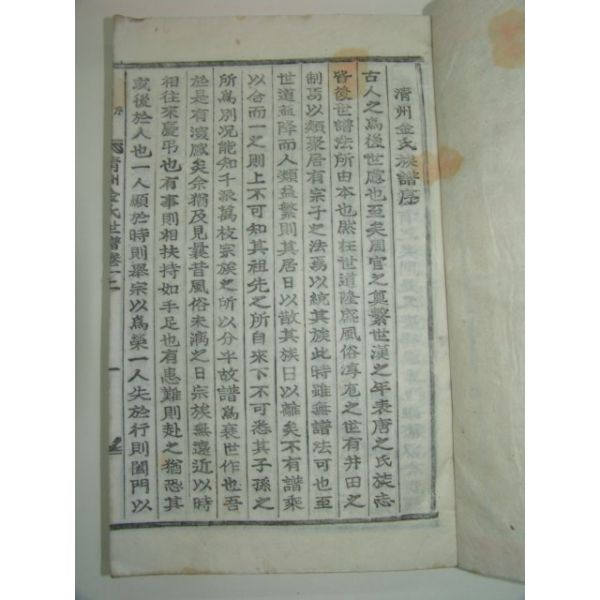 清州金氏族譜序
古人之爲後世慮也至矣周官之奠繫世漢之年表唐之氏族志
皆後世譜法所由本也然在世道隆盛風俗淳厖之世有井田之
制焉以類聚居有宗子之法焉以統其族此時雖無譜法可也至
世道益降而人類益繁則其居日以散其族日以離矣不有譜乘
以合而一之則上不可知其祖先之所自來下不可悉其子孫之
所爲別況能知千派萬枝宗族之所以分乎故譜爲衰世作也吾
於是有演感矣余猶及見曩昔風俗未漓之日宗族無遠近以時
相往來慶弔也有事則相扶持如手足也有患難則赴之猶恐其
或後於人也一人顯於時則擧宗以爲榮一人失於行則闔門以
序
清州金氏世譜卷一
一